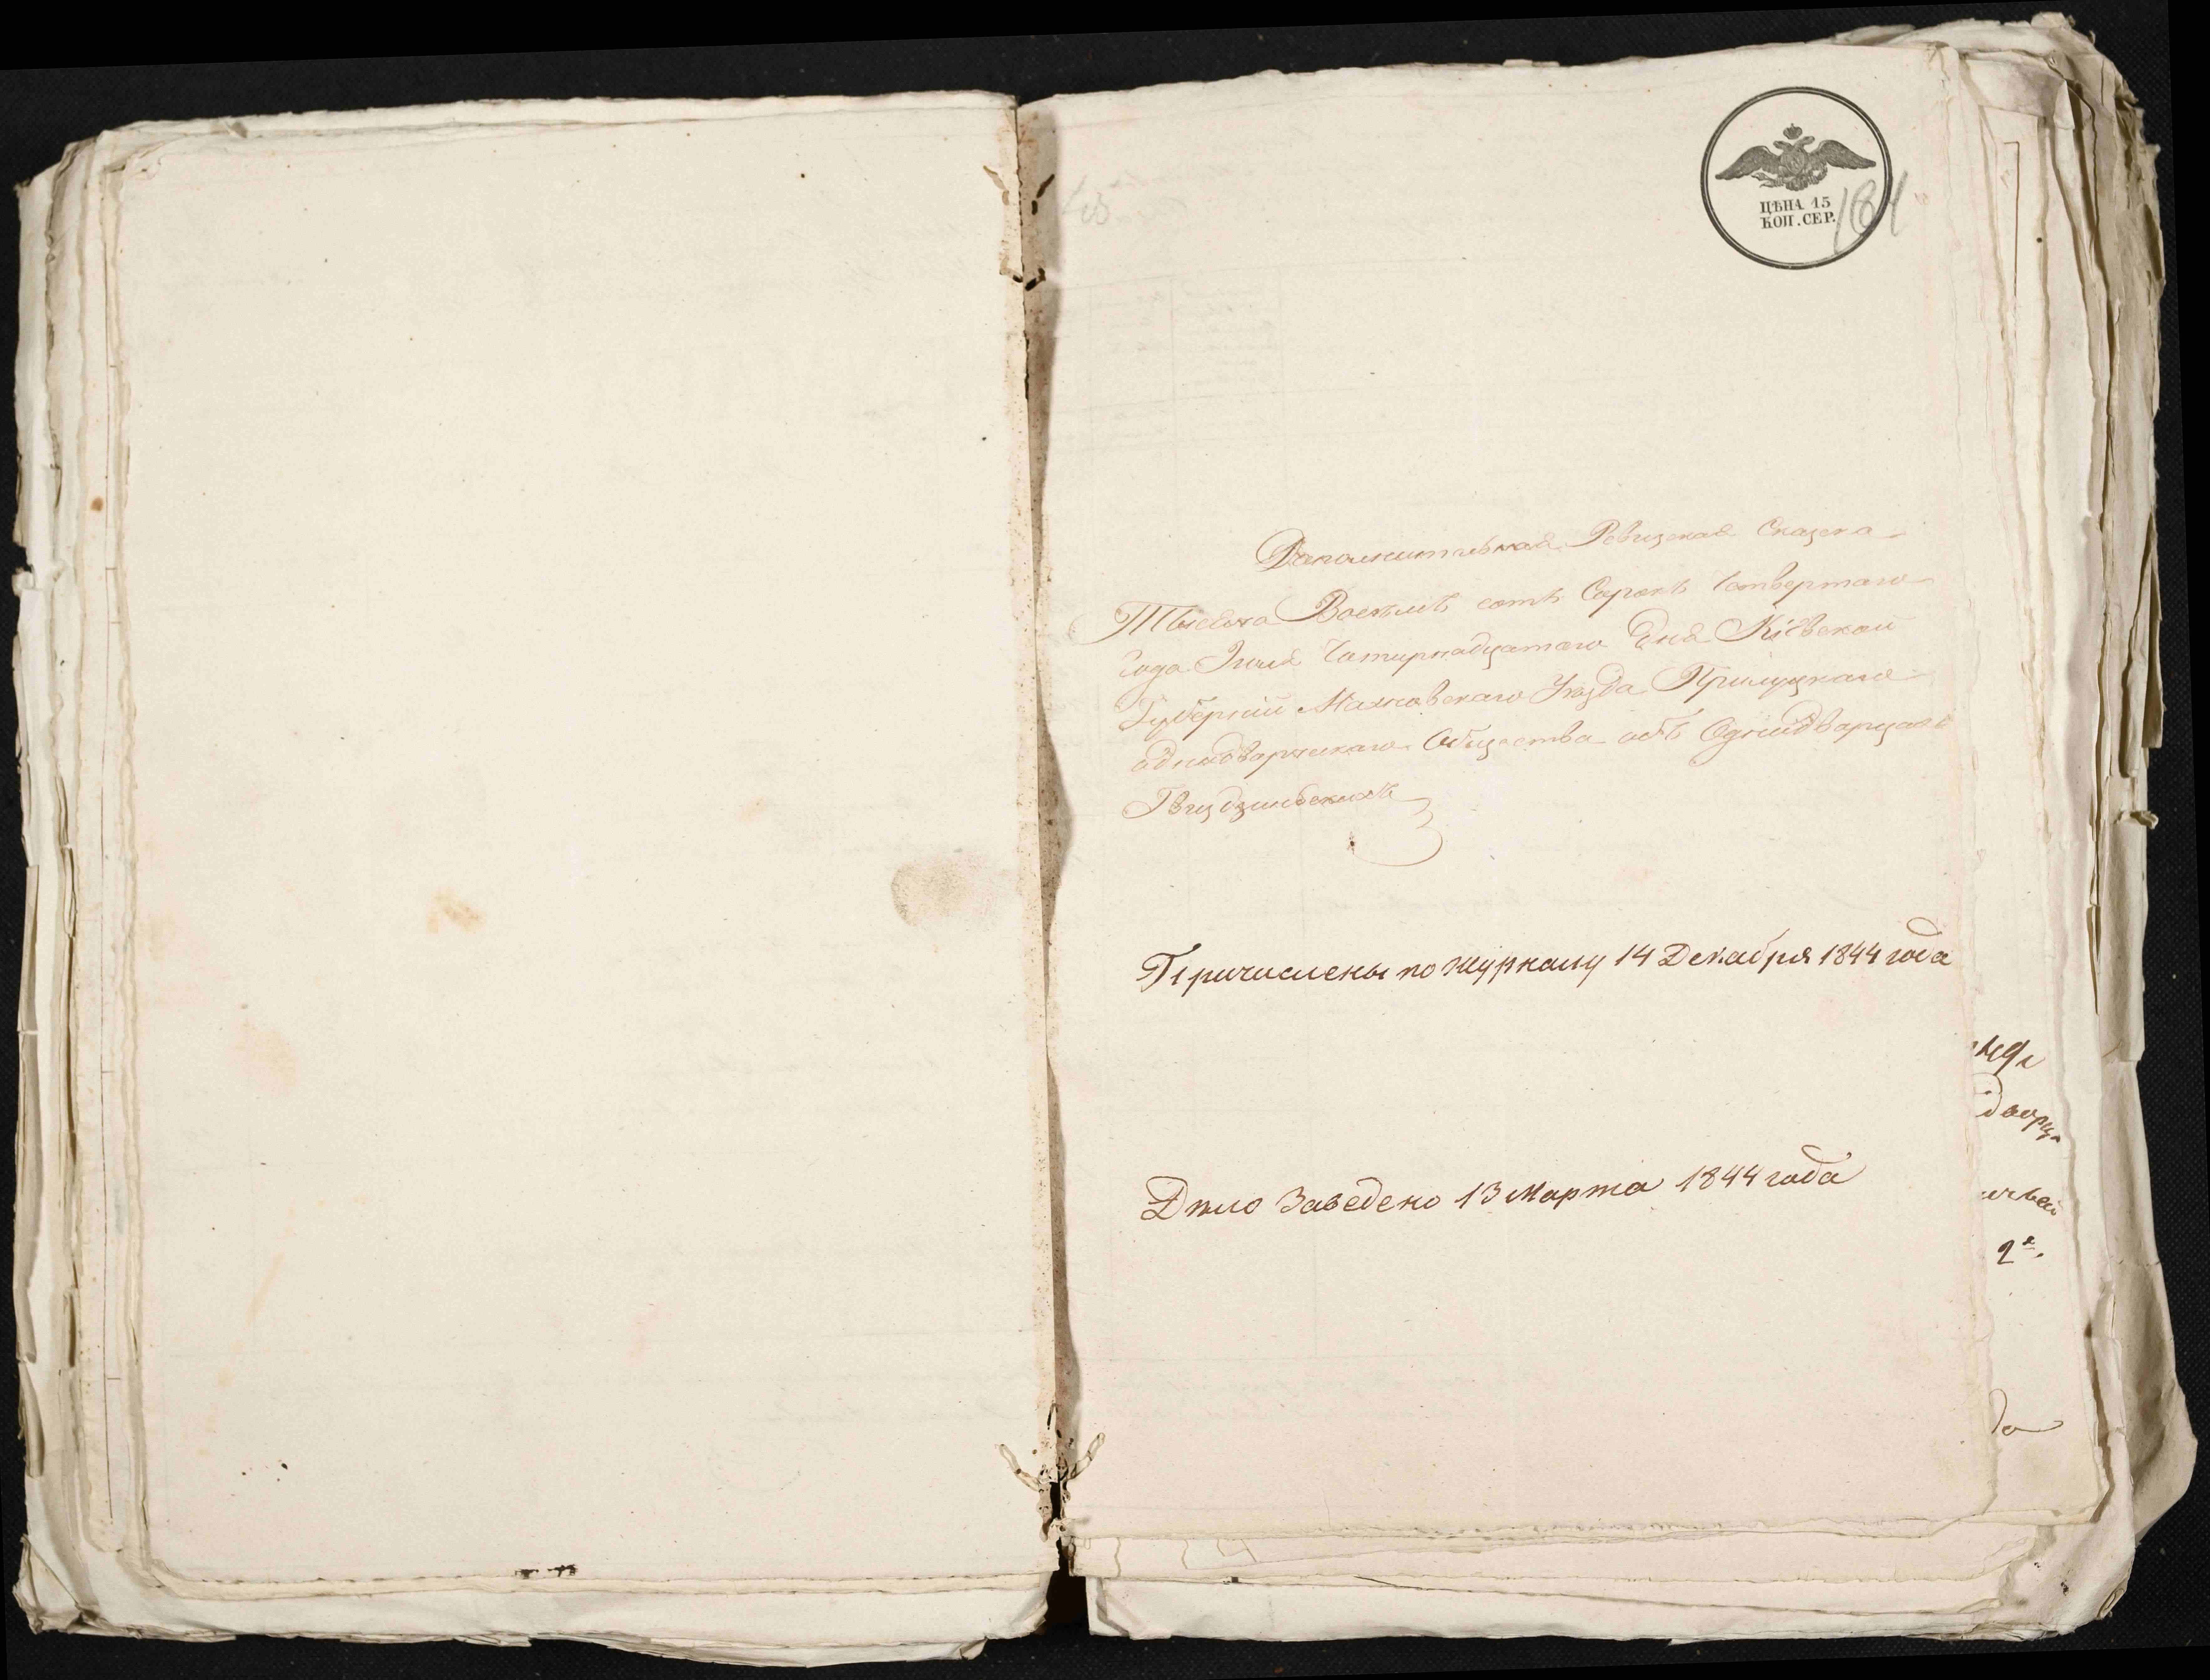 ЦѢНА 15
КОП. СЕР.
184
Дополнительная Ревизская Сказка
Тысяча Восемь сотъ Сорокъ Четвертаго
Года Іюля Четырнадцатаго Дня Кіевской
Губерніи Махновскаго Уезда Прилуцкаго
однодворческаго Общества объ Однодворцахъ
Гвиздзинскихъ
Причислены по журналу 14 Декабря 1844 года
Дело Заведено 13 Марта 1844 года
дворца
2